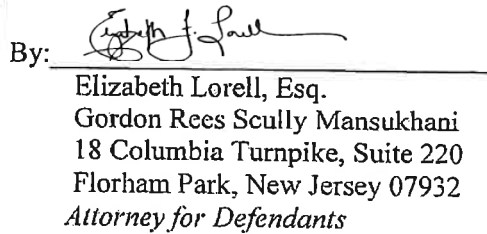 By: Elizabeth F. Lorell
Elizabeth Lorell, Esq.
Gordon Rees Scully Mansukhani
18 Columbia Turnpike, Suite 220
Florham Park, New Jersey 07932
Attorney for Defendants